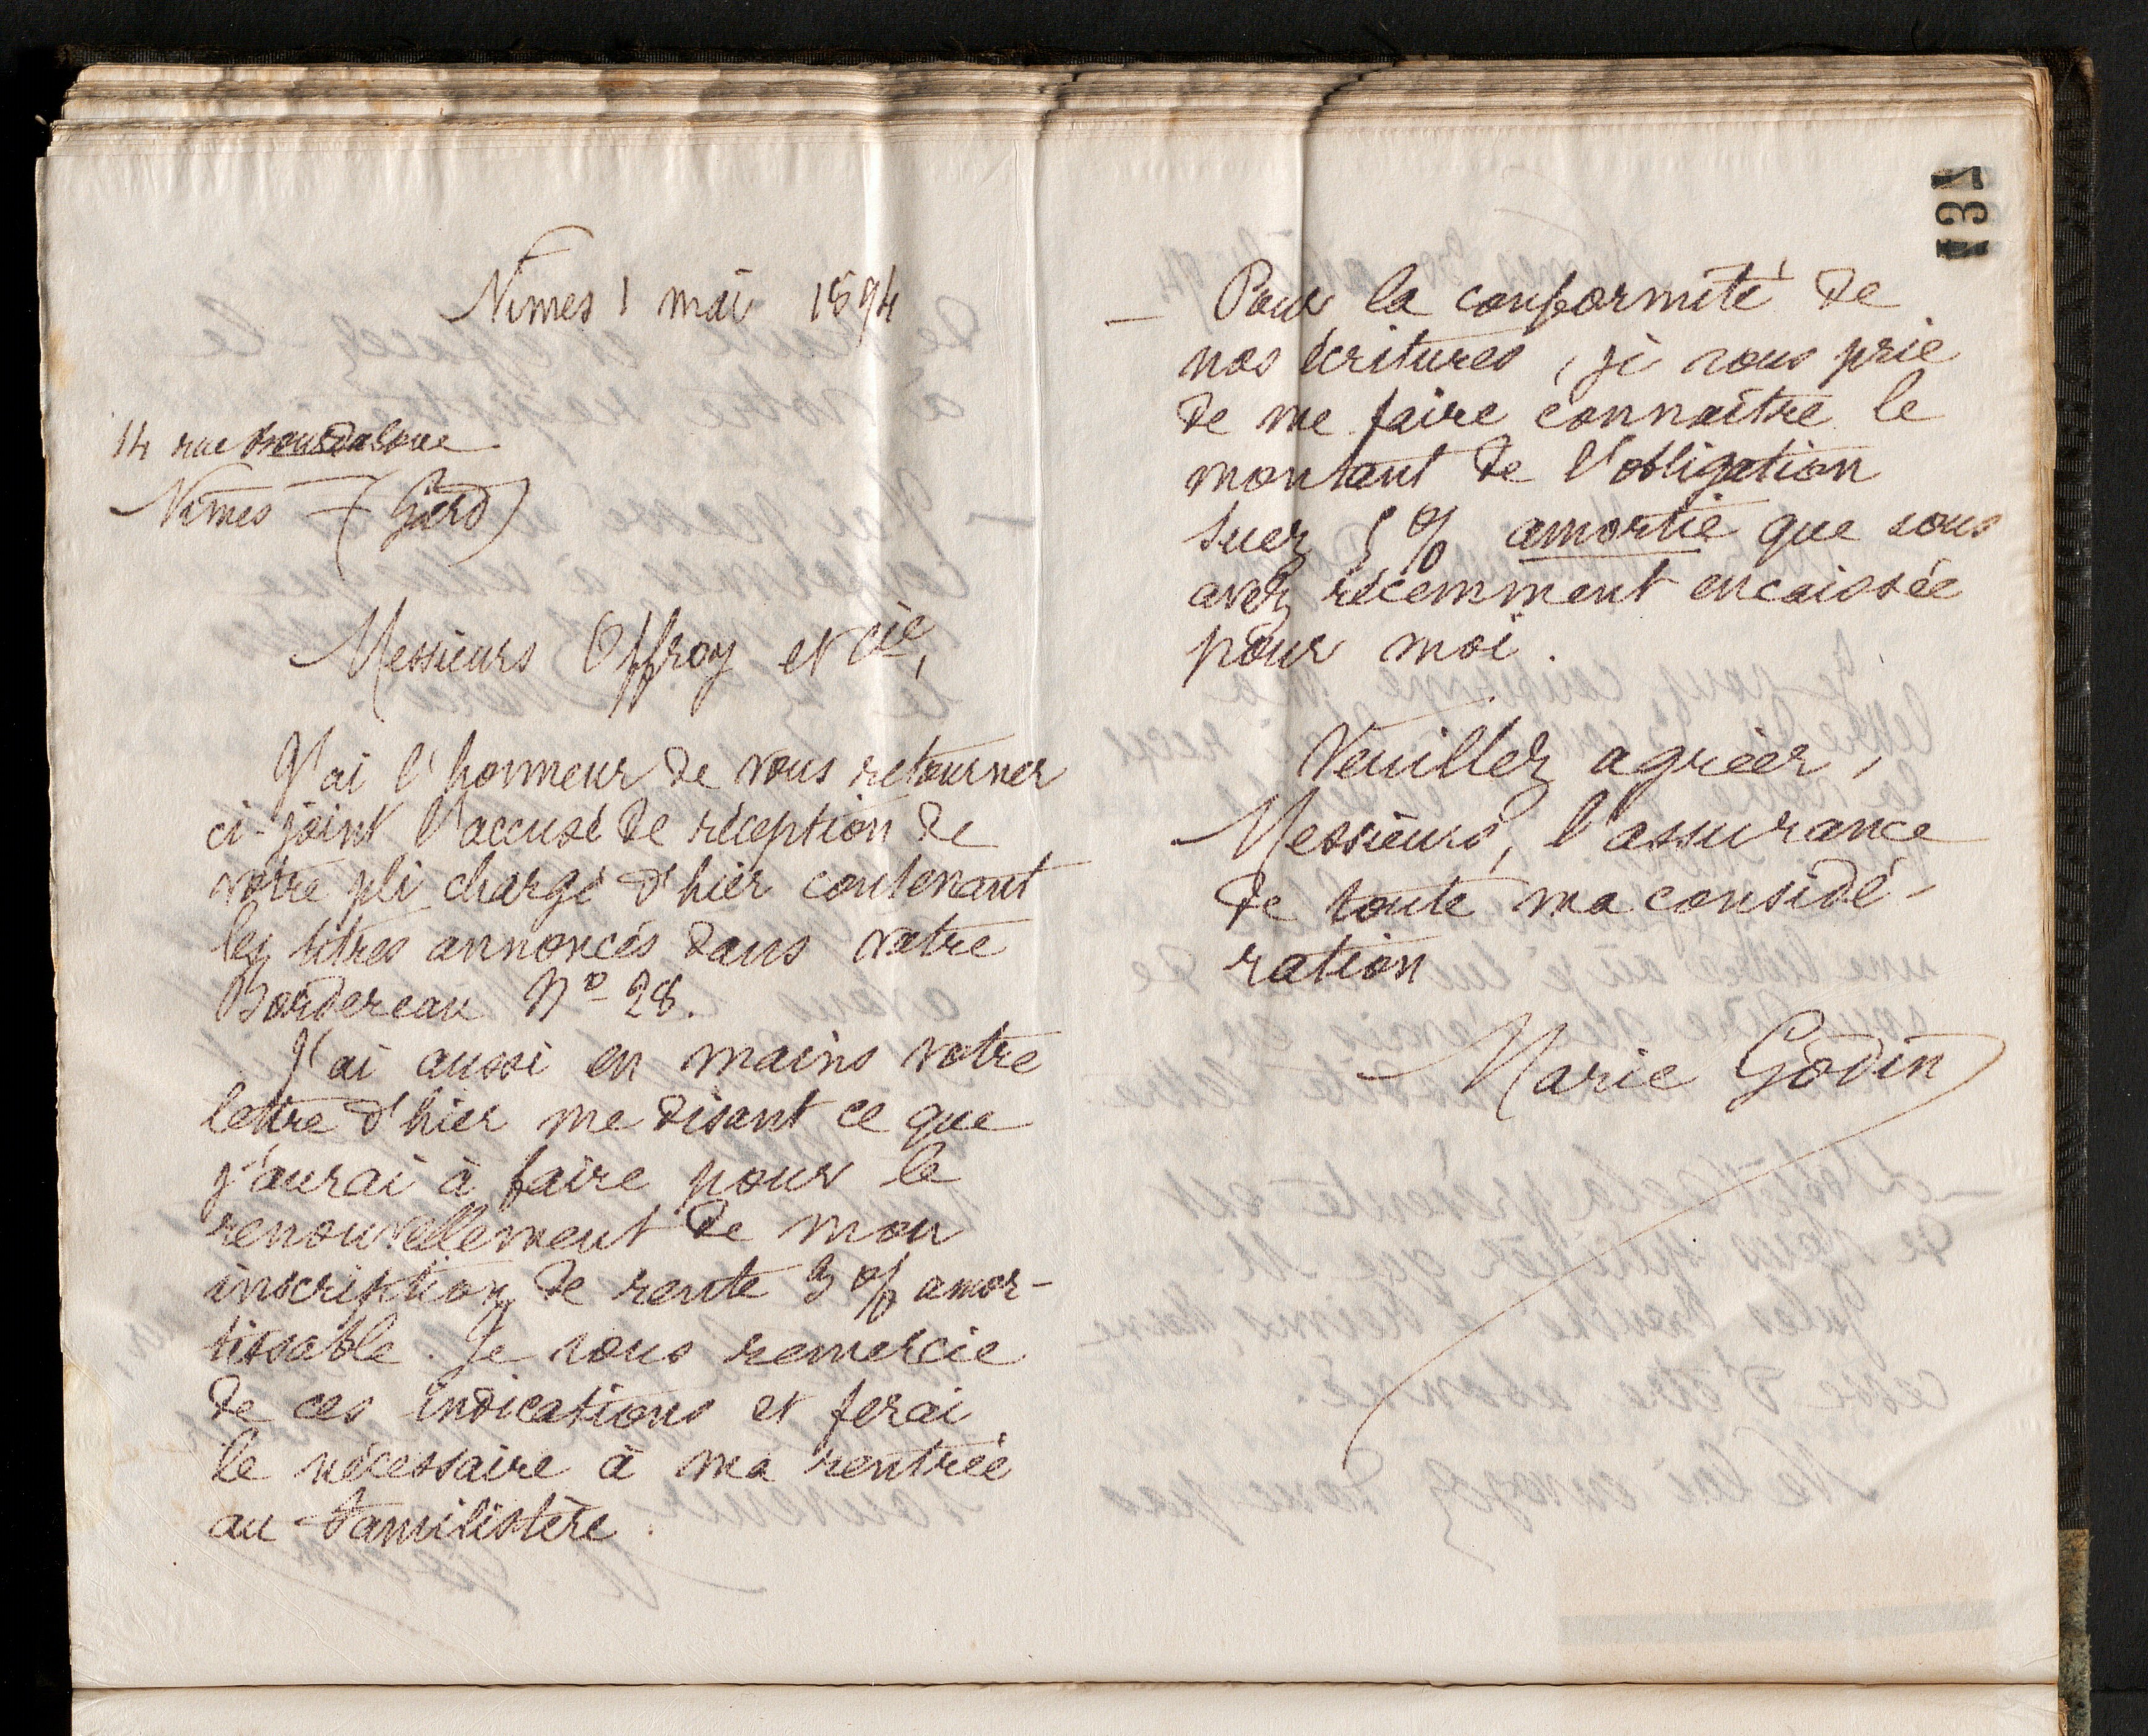 Nîmes 1 mai 1894
14 rue Bourdaloue
Nîmes (Gard)
Messieurs Offroy et Cie,
J'ai l'honneur de vous retourner
ci-joint l'accusé de réception de
votre pli chargé d'hier contenant
les titres annoncés dans votre
Bordereau No 28.
J'ai aussi en mains votre
lettre d'hier me disant ce que
j'aurai à faire pour le
renouvellement de mon
inscription de rente 3 % amor-
tissable. Je vous remercie
de ces indications et ferai
le nécessaire à ma rentrée
au Familistère.
134
— Pour la conformité de
nos écritures, je vous prie
de me faire connaître le
montant de l'obligation
Suez 5 % amortie que vous
avez récemment encaissée
pour moi.
Veuillez agréer,
Messieurs, l'assurance
de toute ma considé-
ration
Marie Godin